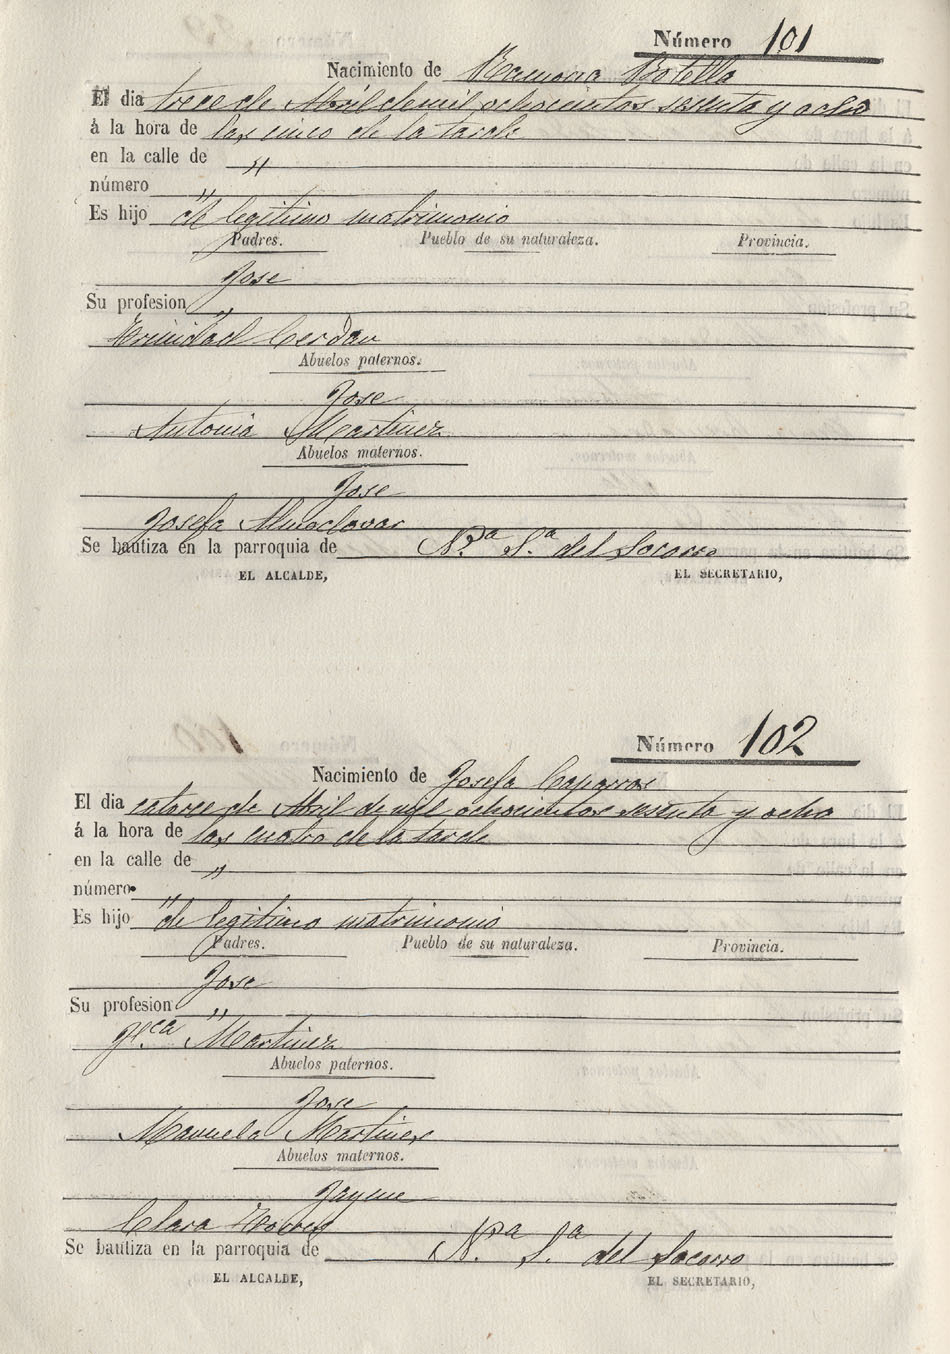 Número 101
Nacimiento de Ramona Botella
El dia trece de Abril de mil ochocientos sesenta y ocho
á la hora de las cinco de la tarde
en la calle de "
número "
Es hijo de legitimo matrimonio
Padres. Pueblo de su naturaleza. Provincia.
Jose
Su profesion "
Trinidad Cerdan
Abuelos paternos.
Jose
Antonia Martinez
Abuelos maternos.
Jose
Josefa Almodovar
Se bautiza en la parroquia de Nª Sª del Socorro
EL ALCALDE, EL SECRETARIO,
Número 102
Nacimiento de Josefa Caparros
El dia catorce de Abril de mil ochocientos sesenta y ocho
á la hora de las cuatro de la tarde
en la calle de "
número "
Es hijo de legitimo matrimonio
Padres. Pueblo de su naturaleza. Provincia.
Jose
Su profesion "
Fca Martinez
Abuelos paternos.
Jose
Manuela Martinez
Abuelos maternos.
Jayme
Clara Torres
Se bautiza en la parroquia de Nª Sª del Socorro
EL ALCALDE, EL SECRETARIO,